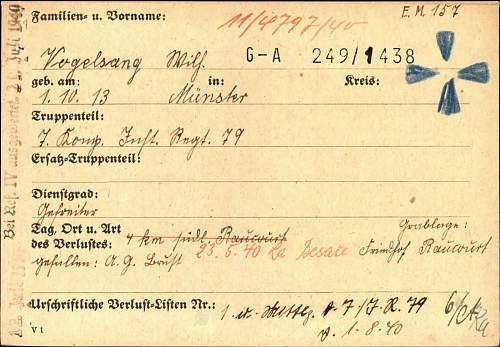 Familien- u. Vorname:
11/4797/40
E.M. 157
Vogelsang Wilh.
G-A 249/1438
geb. am: in: Kreis:
1.10.13 Münster
Truppenteil:
7. Komp. Inft. Regt. 79
Ersatz-Truppenteil:
Dienstgrad:
Gefreiter
Tag, Ort u. Art
des Verlustes: 4 km südl. Raucourt
Grablage:
gefallen: A.G. Brust 25.5.40 La Besace Friedhof Raucourt
Urschriftliche Verlust-Listen Nr.: 1 7/J.R. 79
v. 1.8.40
V 1
Bei Ref. IV ausgewertet